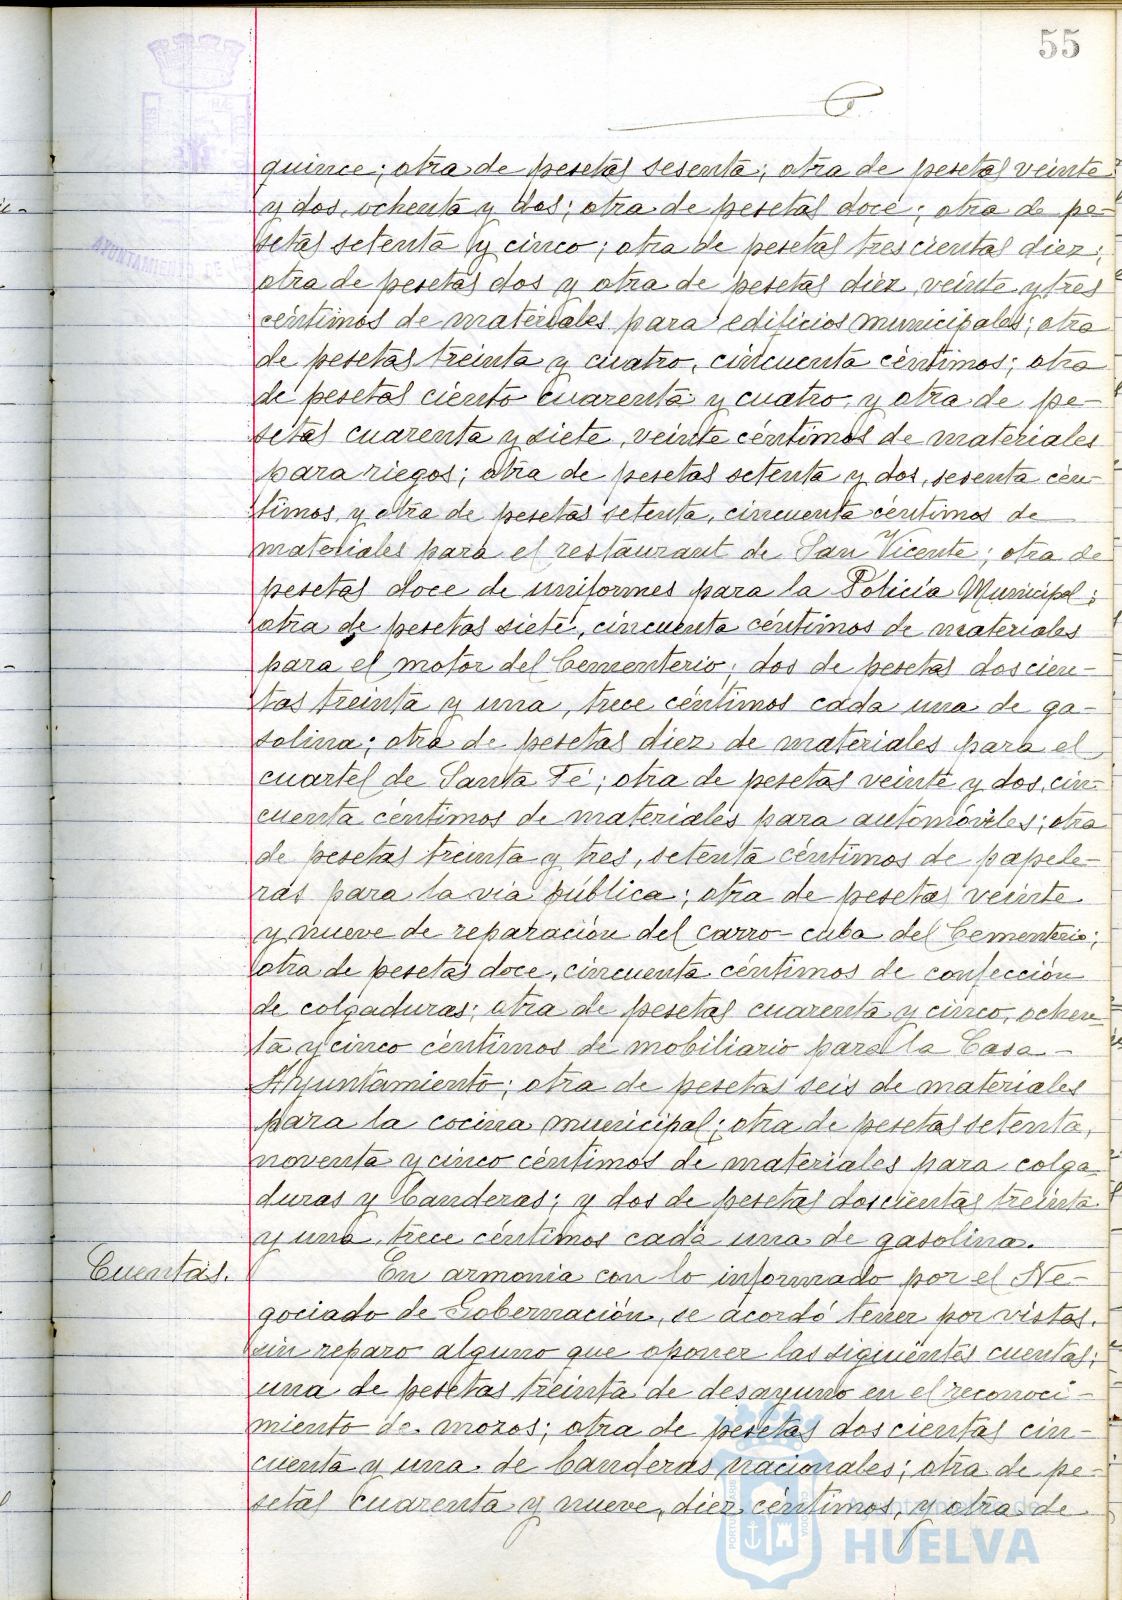 55
quince; otra de pesetas sesenta; otra de pesetas veinte
y dos, ochenta y dos; otra de pesetas doce; otra de pe-
setas setenta y cinco; otra de pesetas trescientas diez;
AYUNTAMIENTO DE
otra de pesetas dos y otra de pesetas diez, veinte y tres
céntimos de materiales para edificios municipales; otra
de pesetas treinta y cuatro, cincuenta céntimos; otra
de pesetas ciento cuarenta y cuatro, y otra de pe-
setas cuarenta y siete, veinte céntimos de materiales
para riegos; otra de pesetas setenta y dos, sesenta cén-
timos, y otra de pesetas setenta, cincuenta céntimos de
materiales para el restaurant de San Vicente; otra de
pesetas doce de uniformes para la Policía Municipal;
otra de pesetas siete, cincuenta céntimos de materiales
para el motor del Cementerio; dos de pesetas doscien-
tas treinta y una, trece céntimos cada una de ga-
solina; otra de pesetas diez de materiales para el
cuartel de Santa Fé; otra de pesetas veinte y dos, cin-
cuenta céntimos de materiales para automóviles; otra
de pesetas treinta y tres, setenta céntimos de papele-
ras para la via pública; otra de pesetas veinte
y nueve de reparación del carro-cuba del Cementerio;
otra de pesetas doce, cincuenta céntimos de confección
de colgaduras; otra de pesetas cuarenta y cinco, ochen-
ta y cinco céntimos de mobiliario para la Casa-
Ayuntamiento; otra de pesetas seis de materiales
para la cocina municipal; otra de pesetas setenta,
noventa y cinco céntimos de materiales para colga-
duras y banderas; y dos de pesetas doscientas treinta
y una, trece céntimos cada una de gasolina.
Cuentas. En armonia con lo informado por el Ne-
gociado de Gobernación, se acordó tener por vistas,
sin reparo alguno que oponer las siguientes cuentas;
una de pesetas treinta de desayuno en el reconoci-
miento de mozos; otra de pesetas doscientas cin-
cuenta y una de banderas nacionales; otra de pe-
setas cuarenta y nueve, diez céntimos, y otra de
Ayuntamiento de
HUELVA